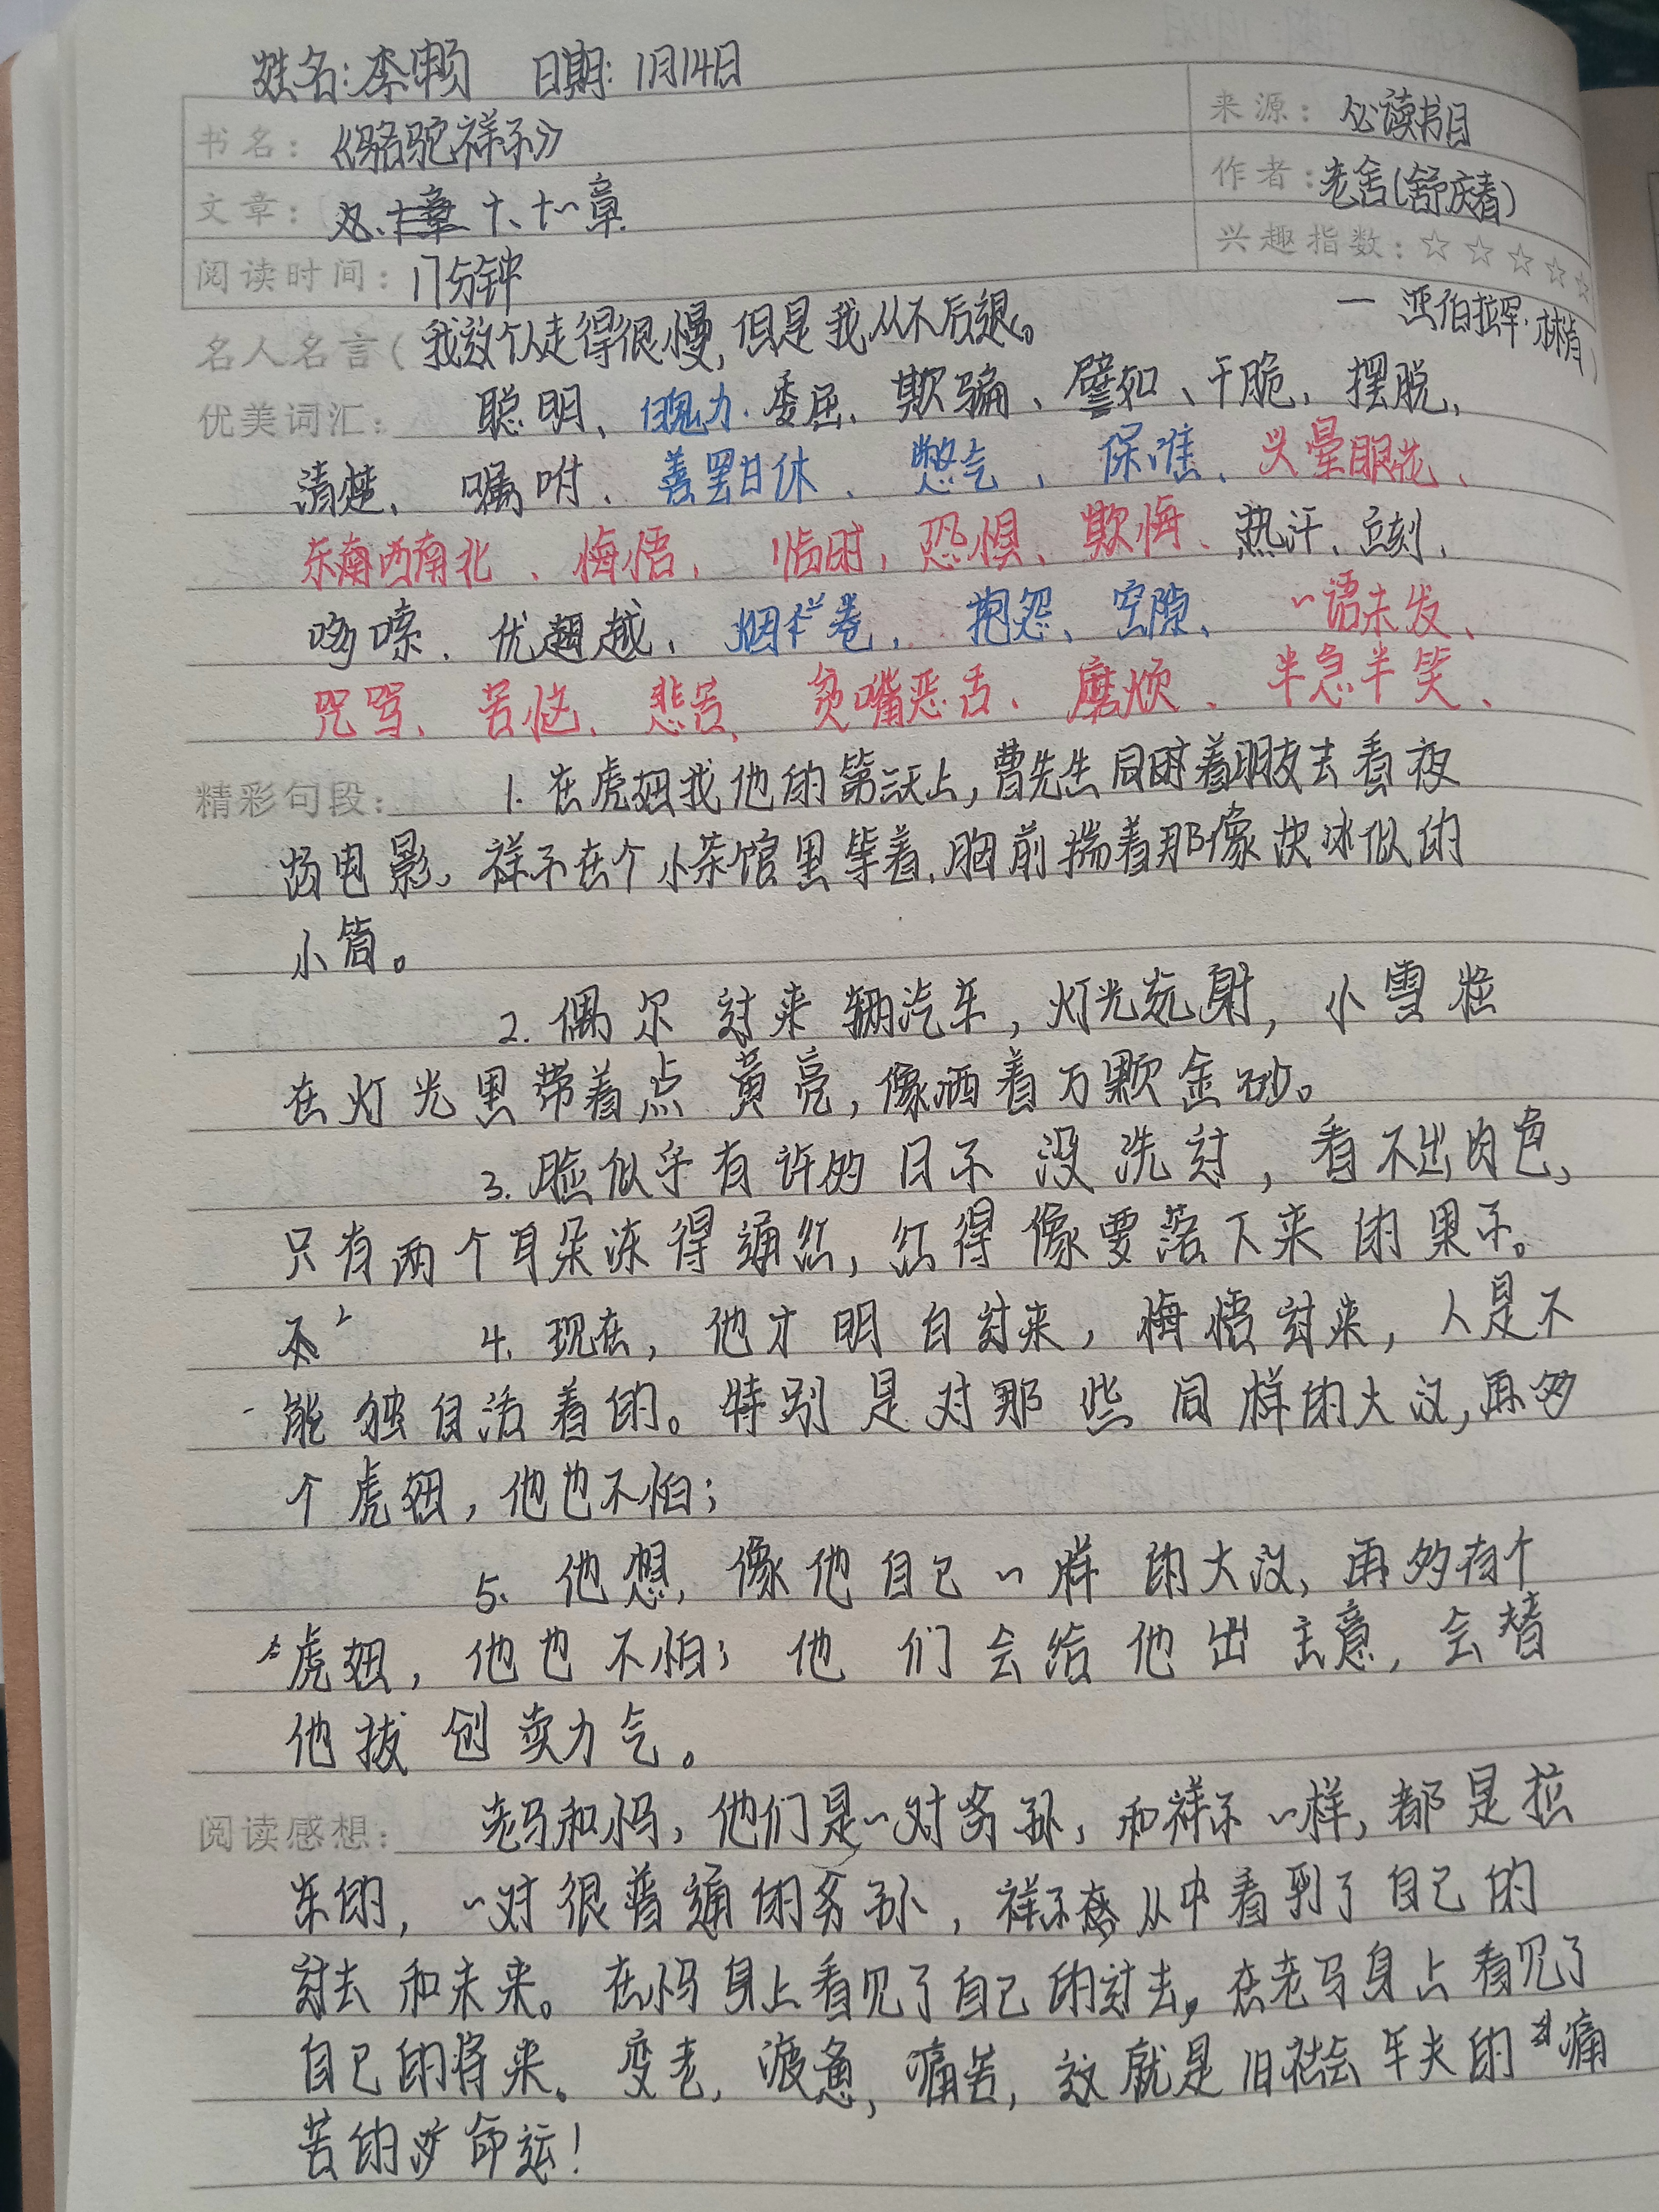 姓名：李赖 日期：1月14日
书名：《骆驼祥子》 来源：必读书目
文章：十、十一章 作者：老舍(舒庆春)
阅读时间：17分钟 兴趣指数：☆☆☆☆☆
名人名言(我这个人走得很慢，但是我从不后退。 — 亚伯拉罕·林肯)
优美词汇： 聪明、 委屈、欺骗、譬如、干脆，摆脱，
清楚、嘱咐、善罢甘休、憋气、保准、头晕眼花、
东南西南北、悔悟、临时，恐惧、欺侮、热汗、立刻，
哆嗦、优越，烟卷，抱怨、空隙、一语未发、
咒骂、苦恼、悲苦、贫嘴恶舌、磨烦、半急半笑、
精彩句段： 1.在虎妞找他的第三天上，曹先生同时着朋友去看夜
场电影，祥子在个小茶馆里等着，胸前揣着那像块冰似的
小筒。
2.偶尔过来辆汽车，灯光远射，小雪粒
在灯光里带着点黄亮，像洒着万颗金砂。
3.脸似乎有许多日子没洗过，看不出肉色，
只有两个耳朵冻得通红，红得像要落下来的果子。
4.现在，他才明白过来，悔悟过来，人是不
能独自活着的。特别是对那些同样的大汉，再多
个虎妞，他也不怕；
5.他想，像他自己一样的大汉，再多有个
虎妞，他也不怕；他们会给他出主意，会替
他拔创卖力气。
阅读感想： 老马和小马，他们是一对爷孙，和祥子一样，都是拉
车的，一对很普通的爷孙，祥子从中看到了自己的
过去和未来。在小马身上看见了自己的过去，在老马身上看见了
自己的将来。变老，疲惫，痛苦，这就是旧社会车夫的痛
苦的命运！